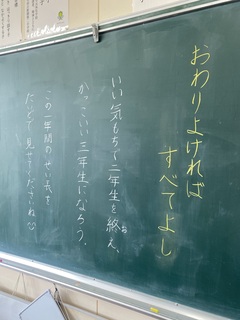 おわりよければ
すべてよし
いい気もちで二年生を終え、
お
かっこいい三年生になろう。
この一年間のせい長を
だして見せてくださいね